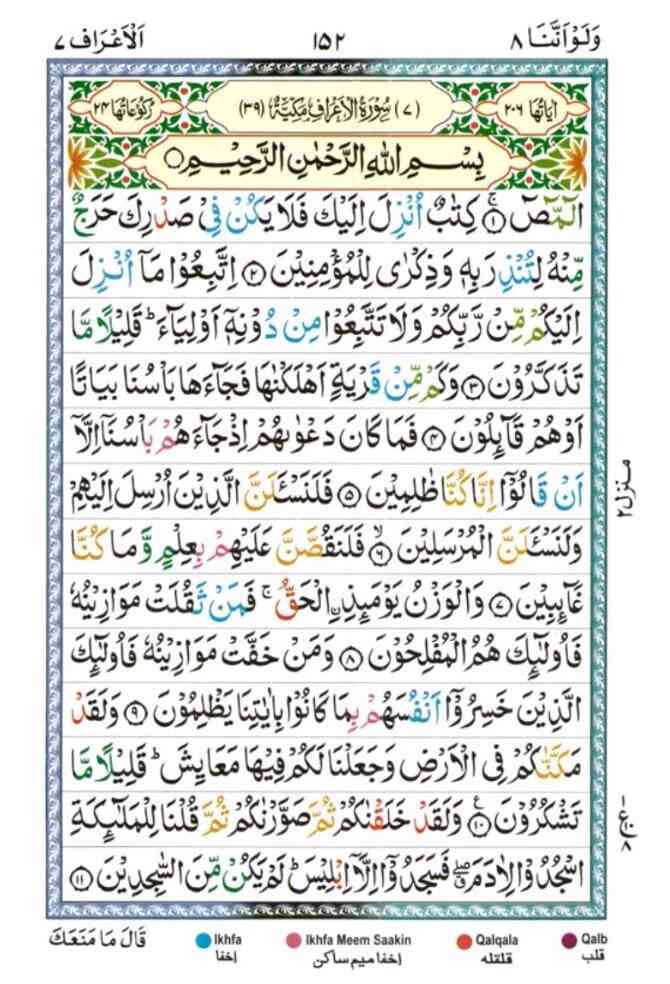 وَلَوْ اَنَّنَا ٨
١٥٢
اَلْاَعْرَاف ٧
اٰيَاتُهَا ٢٠٦
(٧) سُوْرَةُ الْاَعْرَافِ مَكِّيَّةٌ (٣٩)
رُكُوْعَاتُهَا ٢٤
بِسْمِ اللهِ الرَّحْمٰنِ الرَّحِيْمِ
الٓمّٓصٓ ۚ﴿١﴾ كِتٰبٌ اُنْزِلَ اِلَيْكَ فَلَا يَكُنْ فِيْ صَدْرِكَ حَرَجٌ
مِّنْهُ لِتُنْذِرَ بِهٖ وَذِكْرٰى لِلْمُؤْمِنِيْنَ ﴿٢﴾ اِتَّبِعُوْا مَآ اُنْزِلَ
اِلَيْكُمْ مِّنْ رَّبِّكُمْ وَلَا تَتَّبِعُوْا مِنْ دُوْنِهٖٓ اَوْلِيَآءَ ؕ قَلِيْلًا مَّا
تَذَكَّرُوْنَ ﴿٣﴾ وَكَمْ مِّنْ قَرْيَةٍ اَهْلَكْنٰهَا فَجَآءَهَا بَاْسُنَا بَيَاتًا
اَوْ هُمْ قَآئِلُوْنَ ﴿٤﴾ فَمَا كَانَ دَعْوٰىهُمْ اِذْ جَآءَهُمْ بَاْسُنَآ اِلَّآ
اَنْ قَالُوْٓا اِنَّا كُنَّا ظٰلِمِيْنَ ﴿٥﴾ فَلَنَسْـَٔلَنَّ الَّذِيْنَ اُرْسِلَ اِلَيْهِمْ
وَلَنَسْـَٔلَنَّ الْمُرْسَلِيْنَ ۙ﴿٦﴾ فَلَنَقُصَّنَّ عَلَيْهِمْ بِعِلْمٍ وَّمَا كُنَّا
غَآئِبِيْنَ ﴿٧﴾ وَالْوَزْنُ يَوْمَئِذِ ِۨالْحَقُّ ۚ فَمَنْ ثَقُلَتْ مَوَازِيْنُهٗ
فَاُولٰٓئِكَ هُمُ الْمُفْلِحُوْنَ ﴿٨﴾ وَمَنْ خَفَّتْ مَوَازِيْنُهٗ فَاُولٰٓئِكَ
الَّذِيْنَ خَسِرُوْٓا اَنْفُسَهُمْ بِمَا كَانُوْا بِاٰيٰتِنَا يَظْلِمُوْنَ ﴿٩﴾ وَلَقَدْ
مَكَّنّٰكُمْ فِى الْاَرْضِ وَجَعَلْنَا لَكُمْ فِيْهَا مَعَايِشَ ؕ قَلِيْلًا مَّا
تَشْكُرُوْنَ ﴿١٠﴾ وَلَقَدْ خَلَقْنٰكُمْ ثُمَّ صَوَّرْنٰكُمْ ثُمَّ قُلْنَا لِلْمَلٰٓئِكَةِ
اسْجُدُوْا لِاٰدَمَ ۖ فَسَجَدُوْٓا اِلَّآ اِبْلِيْسَ ؕ لَمْ يَكُنْ مِّنَ السّٰجِدِيْنَ ﴿١١﴾
منزل ٢
ع
٨
قَالَ مَا مَنَعَكَ
Ikhfa
اِخفا
Ikhfa Meem Saakin
اِخفا ميم ساكن
Qalqala
قلقله
Qalb
قلب